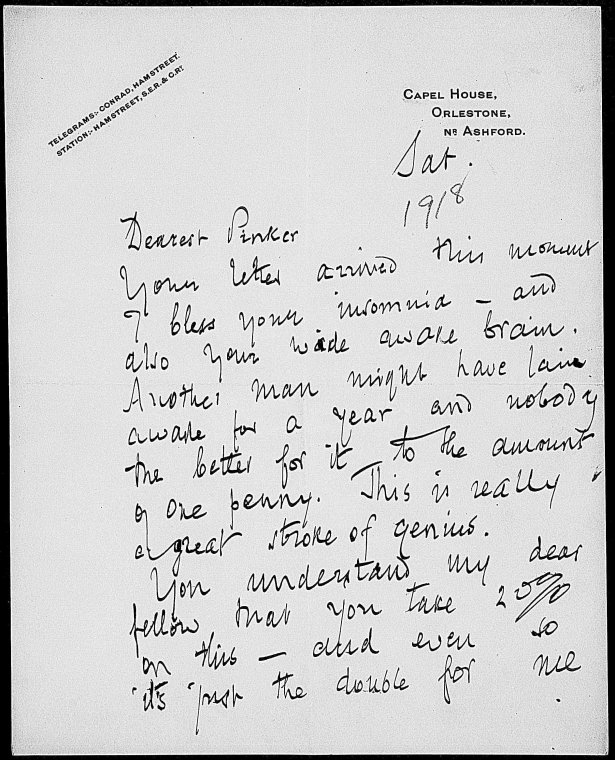 TELEGRAMS:- CONRAD, HAMSTREET.
STATION:- HAMSTREET, S.E.R. & C.RY.
CAPEL HOUSE,
ORLESTONE,
NR ASHFORD.
Sat.
1918
Dearest Pinker
Your letter arrived this moment
I bless your insomnia – and
also your wide awake brain.
Another man might have lain
awake for a year and nobody
the better for it to the amount
of one penny. This is really
a great stroke of genius.
You understand my dear
fellow that you take 20%
on this – and even so
it's just the double for me